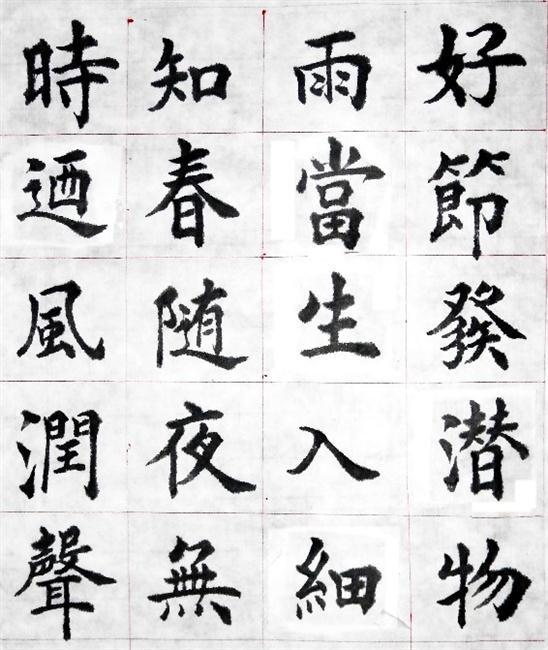 好雨知時
節當春迺
發生随風
潜入夜潤
物細無聲